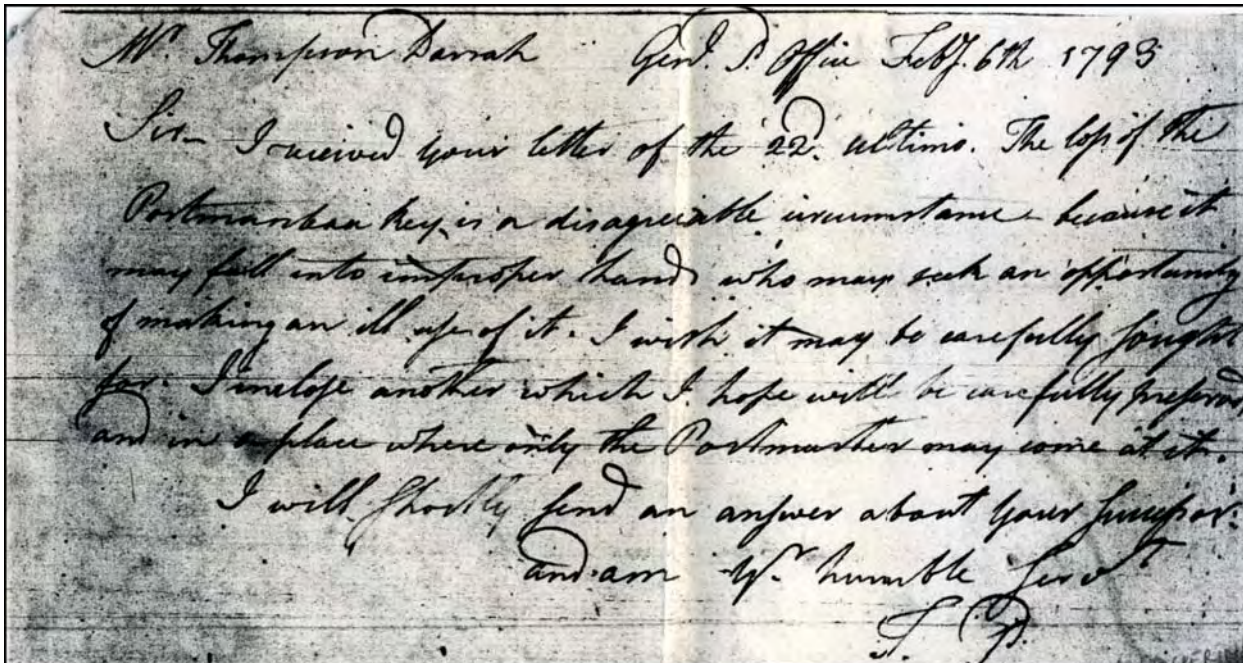 Mr. Thompson Darrah Genl. P. Office Feby. 6th 1793
Sir - I received your letter of the 22d. ultimo. The loss of the
Portmanteau key, is a disagreeable circumstance - because it
may fall into improper hands who may seek an opportunity
of making an ill use of it. I wish it may be carefully sought
for. I inclose another which I hope will be carefully preserved
and in a place where only the Postmaster may come at it.
I will shortly send an answer about your Successor.
and am Yr. humble Servt
T. P.